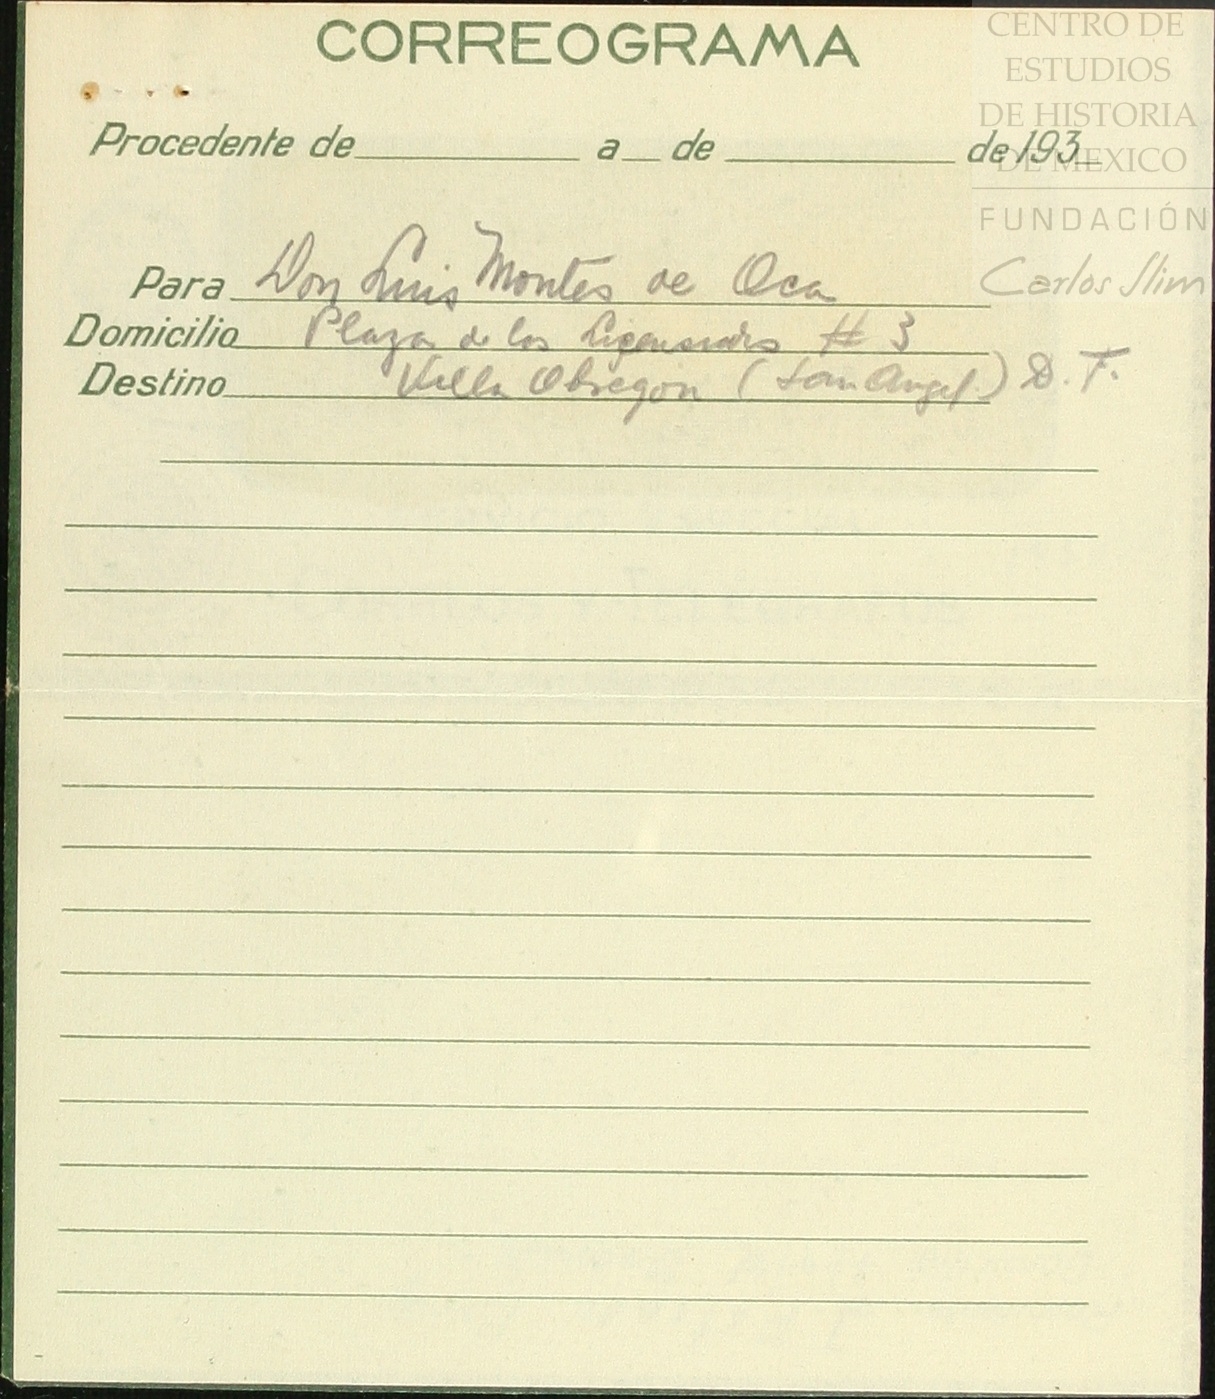 CORREOGRAMA
Procedente de a de de 193
Para Don Luis Montes de Oca
Domicilio Plaza de los # 3
Destino Villa Obregon (San Angel.) D. F.
CENTRO DE
ESTUDIOS
DE HISTORIA
DE MEXICO
FUNDACIÓN
Carlos Slim